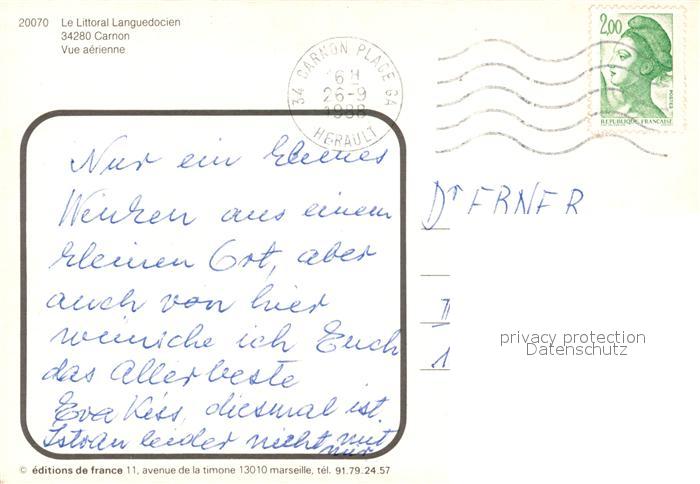 20070 Le Littoral Languedocien
34280 Carnon
Vue aérienne
34 CARNON PLAGE GA
6H
26-9
1988
HERAULT
2,00
POSTES
REPUBLIQUE FRANCAISE
Nur ein kleines
Winken aus einem
kleinen Ort, aber
auch von hier
wünsche ich Euch
das Allerbeste
Eva Kiss, diesmal ist
Istvan leider nicht mit
nur
Dr ERNER
II
1
privacy protection
Datenschutz
© éditions de france 11, avenue de la timone 13010 marseille, tél. 91.79.24.57